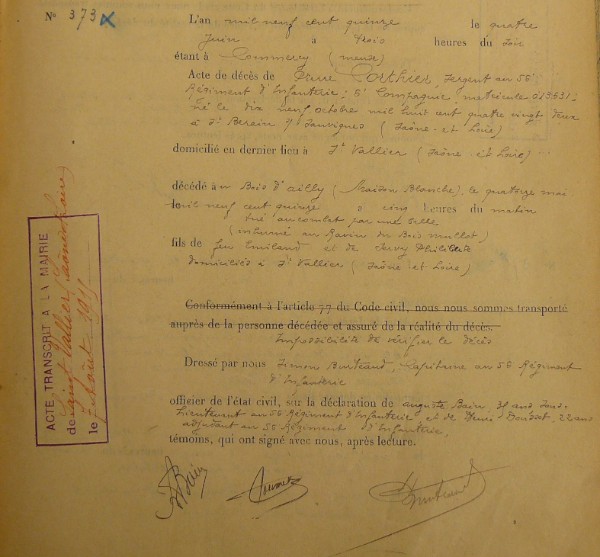 N° 373
L'an mil neuf cent quinze le quatre
Juin à trois heures du soir
étant à Commercy (Meuse)
Acte de décès de Pierre Corthier, Sergent au 56e
Régiment d'Infanterie; 5e Compagnie; matricule 013531;
né le dix neuf octobre mil huit cent quatre vingt deux
à St Berain s/ Sanvignes (Saône-et-Loire)
domicilié en dernier lieu à St Vallier (Saône-et-Loire)
décédé au Bois d'Ailly (Maison Blanche), le quatorze mai
mil neuf cent quinze à cinq heures du matin
tué au combat par une balle
(inhumé au Ravin du Bois mullot)
fils de feu Emiland et de Philiberte
domiciliés à St Vallier (Saône-et-Loire)
Conformément à l'article 77 du Code civil, nous nous sommes transporté
auprès de la personne décédée et assuré de la réalité du décès.
Impossibilité de vérifier le décès
Dressé par nous Simon Capitaine au 56 Régiment
d'Infanterie
officier de l'état civil, sur la déclaration de auguste Bain 31 ans Sous-
Lieutenant au 56 Régiment d'Infanterie et de 22 ans
adjudant au 56 Régiment d'Infanterie,
témoins, qui ont signé avec nous, après lecture.
ACTE TRANSCRIT A LA MAIRIE
de Saint Vallier, Saône et Loire
le 7 août 1915